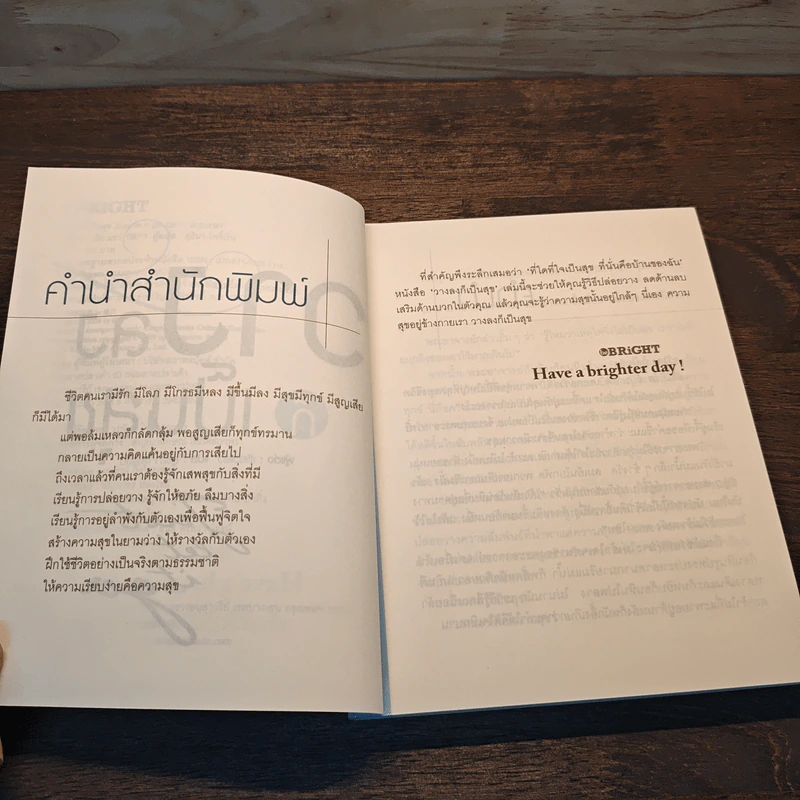 คำนำสำนักพิมพ์
ชีวิตคนเรามีรัก มีโลภ มีโกรธมีหลง มีขึ้นมีลง มีสุขมีทุกข์ มีสูญเสีย
ก็มีได้มา
แต่พอล้มเหลวก็กลัดกลุ้ม พอสูญเสียก็ทุกข์ทรมาน
กลายเป็นความคิดแค้นอยู่กับการเสียไป
ถึงเวลาแล้วที่คนเราต้องรู้จักเสพสุขกับสิ่งที่มี
เรียนรู้การปล่อยวาง รู้จักให้อภัย ลืมบางสิ่ง
เรียนรู้การอยู่ลำพังกับตัวเองเพื่อฟื้นฟูจิตใจ
สร้างความสุขในยามว่าง ให้รางวัลกับตัวเอง
ฝึกใช้ชีวิตอย่างเป็นจริงตามธรรมชาติ
ให้ความเรียบง่ายคือความสุข
ที่สำคัญพึงระลึกเสมอว่า 'ที่ใดที่ใจเป็นสุข ที่นั่นคือบ้านของฉัน'
หนังสือ 'วางลงก็เป็นสุข' เล่มนี้จะช่วยให้คุณรู้วิธีปล่อยวาง ลดด้านลบ
เสริมด้านบวกในตัวคุณ แล้วคุณจะรู้ว่าความสุขนั้นอยู่ใกล้ๆ นี่เอง ความ
สุขอยู่ข้างกายเรา วางลงก็เป็นสุข
BRiGHT
Have a brighter day !